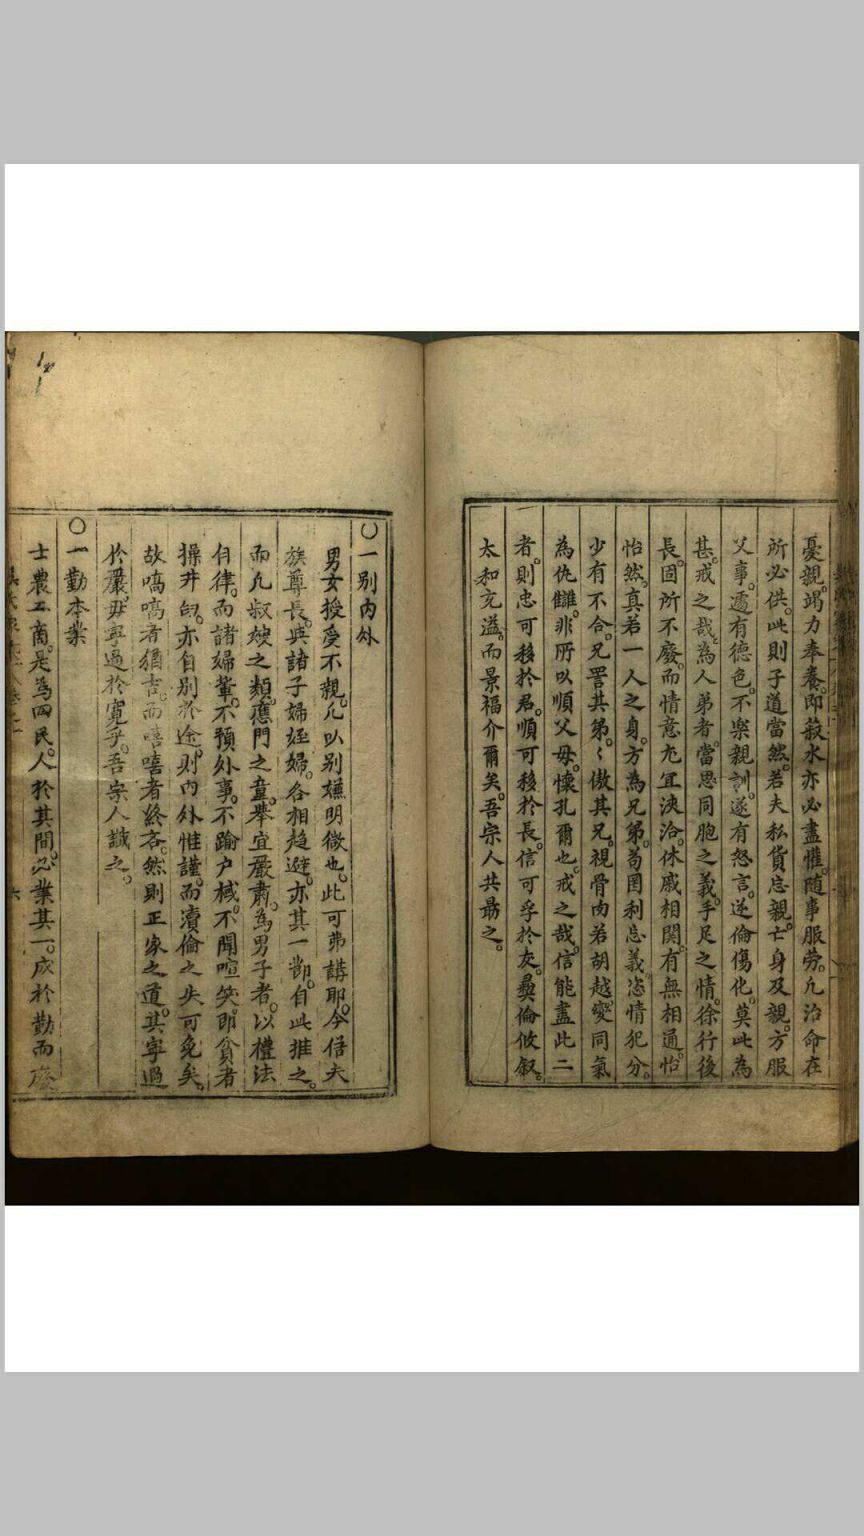 憂親。竭力奉養。即菽水亦必盡懽。隨事服勞。凡治命在
所必供。此則子道當然。若夫私貨忘親。亡身及親。方服
父事。遽有德色。不樂親訓。遂有怒言。逆倫傷化。莫此為
甚。戒之哉。為人弟者。當思同胞之義。手足之情。徐行後
長。固所不廢。而情意尤宜浹洽。休戚相関。有無相通。怡
怡然。真若一人之身。方為兄弟。苟罔利忘義。恣情犯分。
少有不合。兄詈其弟。弟傲其兄。視骨肉若胡越。變同氣
為仇讎。非所以順父母。懷孔爾也。戒之哉。信能盡此二
者。則忠可移於君。順可移於長。信可孚於友。彝倫攸叙。
太和充溢。而景福介爾矣。吾宗人共勗之。
〇一別內外
男女授受不親。凡以別嫌明微也。此可弗講耶。今伯夫
族尊長。與諸子婦姪婦。各相趨避。亦其一節。自此推之。
而凡叔嫂之類。應門之童。舉宜嚴肅。為男子者。以禮法
自律。而諸婦輩。不預外事。不踰户棫。不聞喧笑。即貧者
操井臼。亦自別於途。則內外惟謹。而瀆倫之失可免矣。
故嗃嗃者猶吉。而嘻嘻者終吝。然則正家之道。其寧過
於嚴。毋寧過於寛乎。吾宗人識之。
〇一勤本業
士農工商。是為四民。人於其間。必業其一。成於勤而
六